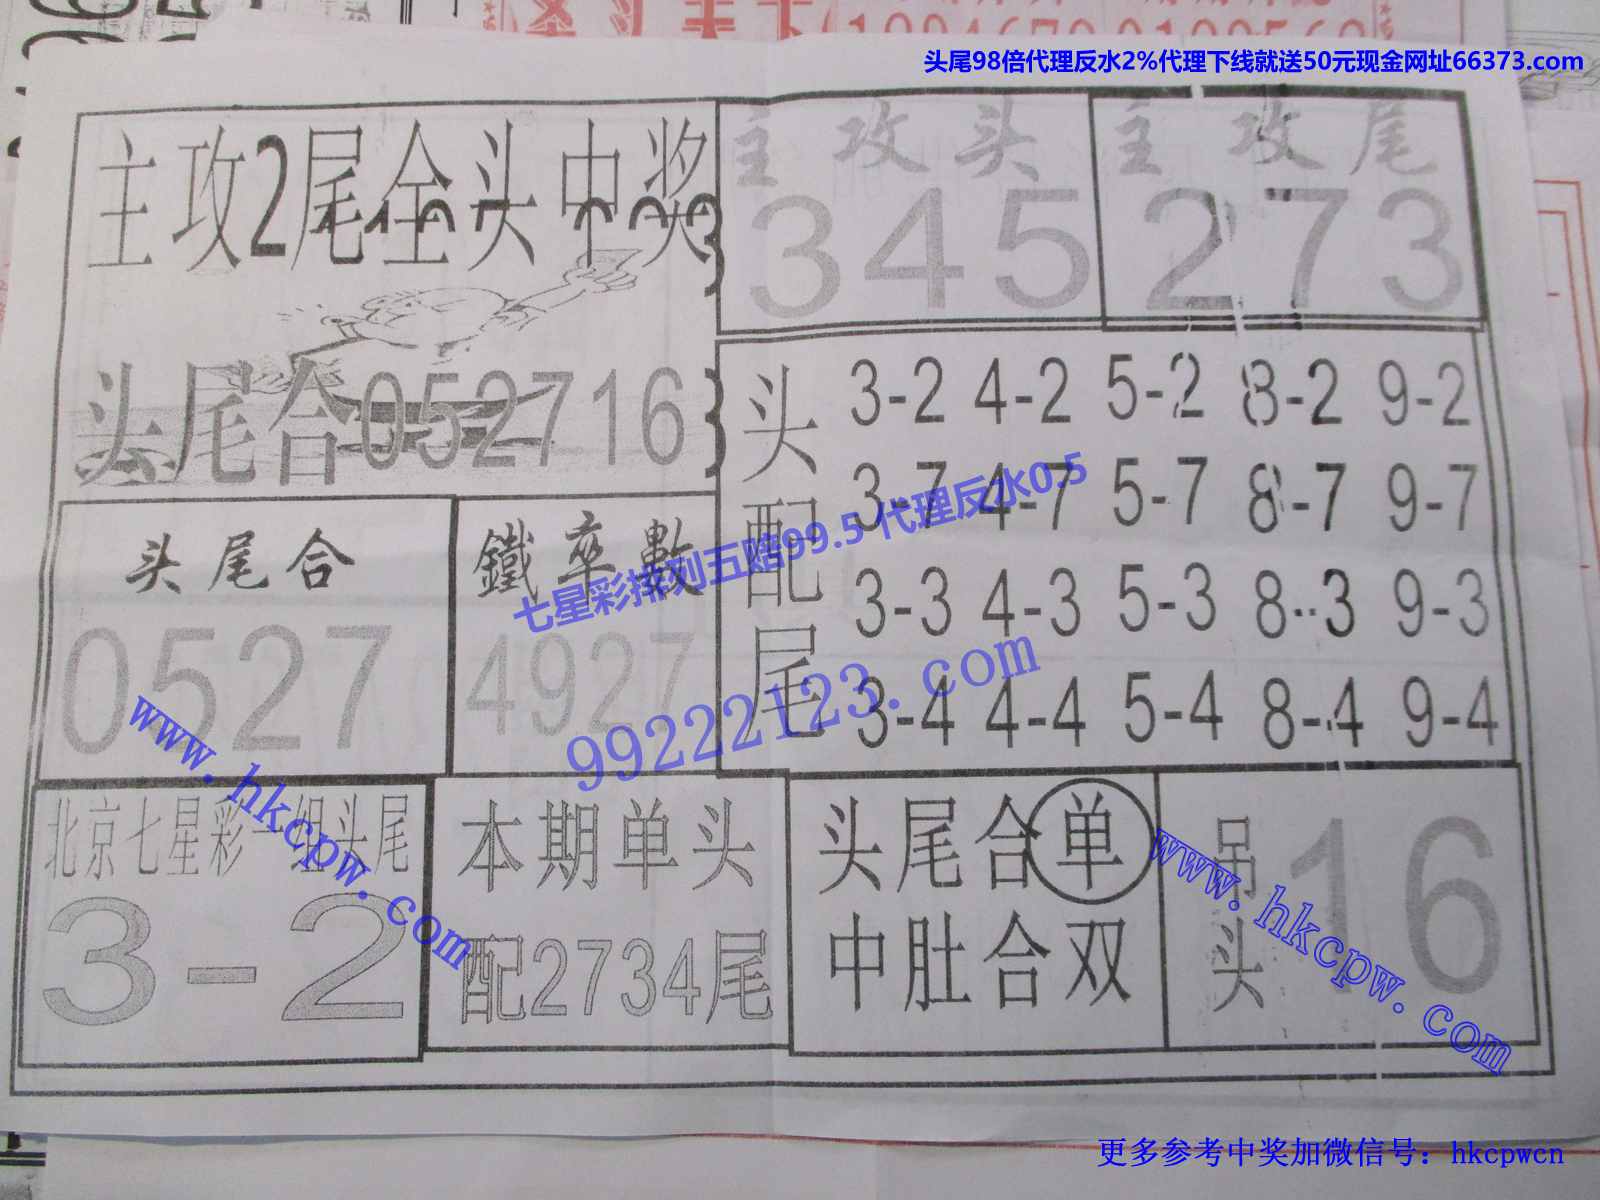 头尾98倍代理反水2%代理下线就送50元现金网址66373.com
主攻2尾全头中奖
头尾合052716
主攻头
345
主攻尾
273
头配尾
3-2 4-2 5-2 8-2 9-2
3-7 4-7 5-7 8-7 9-7
3-3 4-3 5-3 8-3 9-3
3-4 4-4 5-4 8-4 9-4
头尾合
0527
鐵率數
4927
七星彩排列五赔99.5 代理反水0.5
99222123.com
www.hkcpw.com
北京七星彩一组头尾
3-2
本期单头
配2734尾
头尾合单
中肚合双
吊头
16
www.hkcpw.com
更多参考中奖加微信号：hkcpwcn